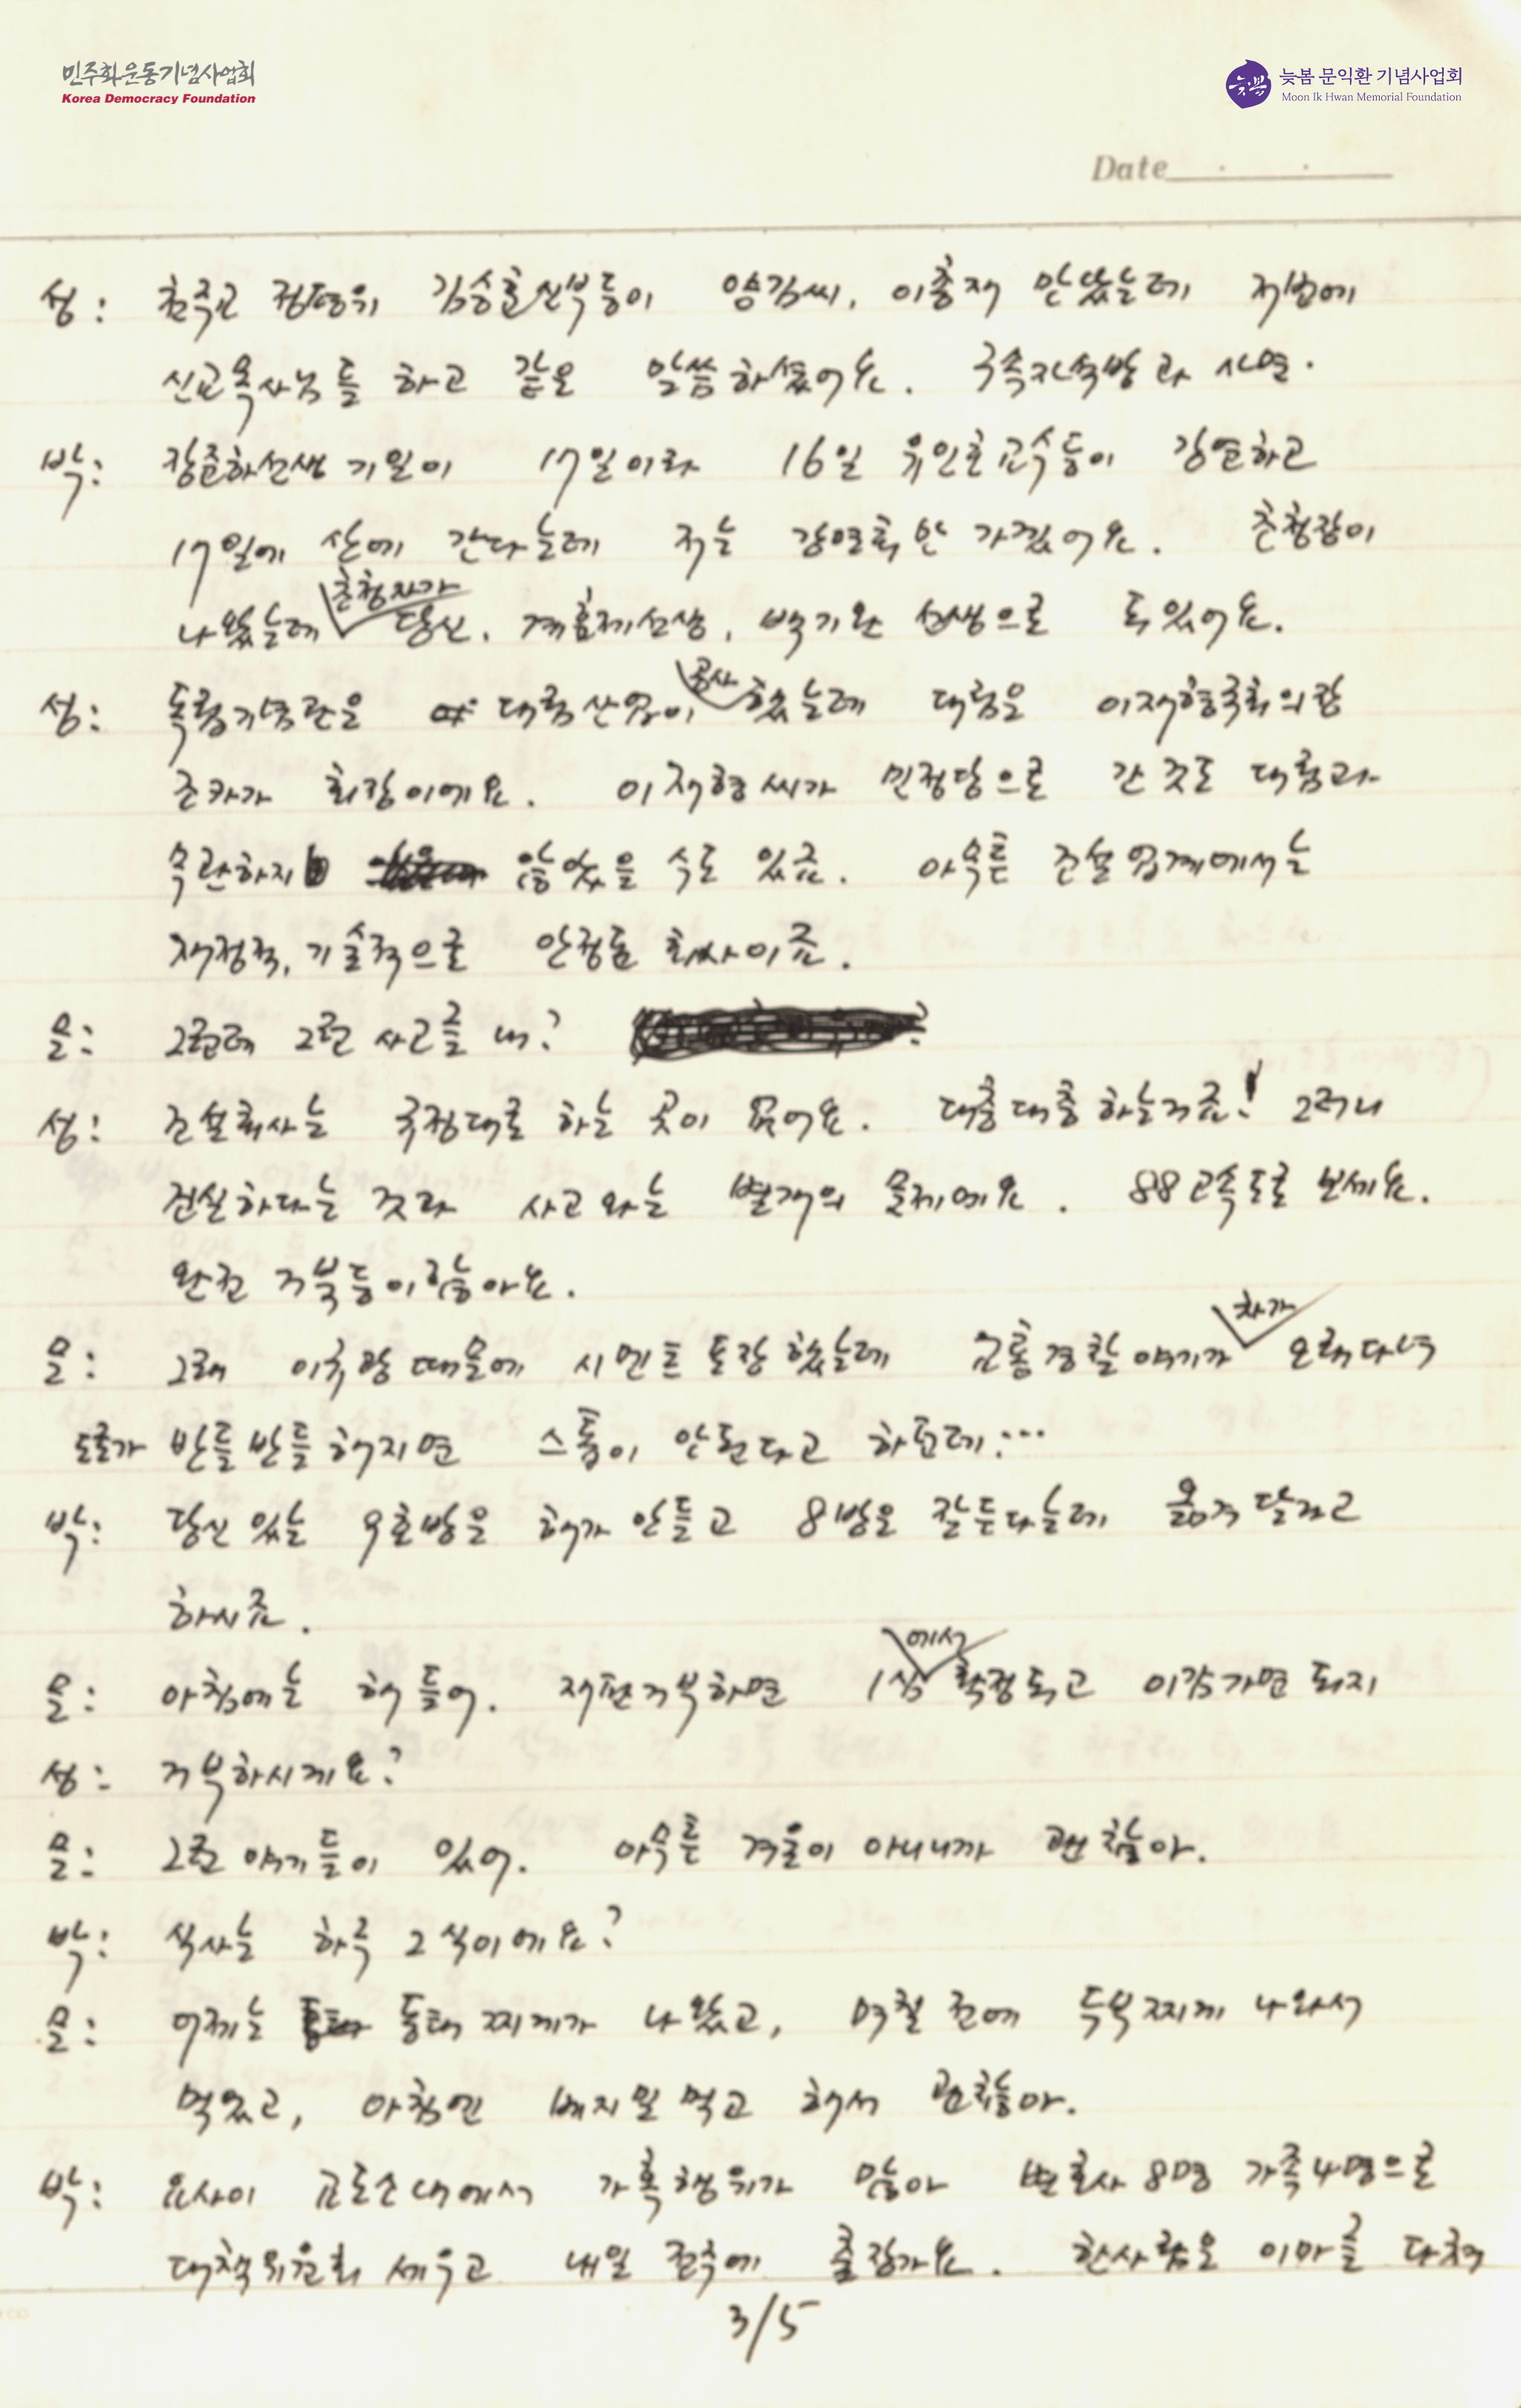 민주화운동기념사업회
Korea Democracy Foundation
늦봄 문익환 기념사업회
Moon Ik Hwan Memorial Foundation
Date
성: 천주교 정평위 김승훈신부등이 양김씨, 이총재 만났는데 저번에
신교목사님들 하고 같은 말씀하셨어요. 구속자석방과 사면.
박: 장준하선생 기일이 17일이라 16일 유인호교수등이 강연하고
17일에 산에 간다는데 저는 강연회만 가겠어요. 초청장이
나왔는데 초청자가 당신, 계훈제선생, 백기완 선생으로 돼있어요.
성: 독립기념관을 대림산업이 공사 했는데 대림은 이재형국회의장
조카가 회장이에요. 이재형씨가 민정당으로 간 것도 대림과
무관하지 않았을 수도 있죠. 아뭏튼 건설업계에서는
재정적, 기술적으로 안정된 회사이죠.
문: 그런데 그런 사고를 내?
성: 건설회사는 규정대로 하는 곳이 없어요. 대충대충 하는거죠! 그러니
건실하다는 것과 사고와는 별개의 문제에요. 88고속도로 보세요.
완전 거북등이잖아요.
문: 그래 이후락 때문에 시멘트 포장했는데 교통경찰 얘기가 차가 오래다녀
도로가 반들반들해지면 스톱이 안된다고 하던데…
박: 당신 있는 9호방은 해가 안들고 8방은 잘든다는데 옮겨달라고
하시죠.
문: 아침에는 해 들어. 재판거부하면 1심에서 확정되고 이감가면 되지
성: 거부하시게요?
문: 그런 얘기들이 있어. 아뭏튼 겨울이 아니니까 괜찮아.
박: 식사는 하루 2식이에요?
문: 어제는 동태찌게가 나왔고, 며칠 전에 두부찌게 나와서
먹었고, 아침엔 베지밀 먹고 해서 괜찮아.
박: 요사이 교도소내에서 가혹행위가 많아 변호사 8명 가족 4명으로
대책위원회 세우고 내일 전주에 출장가요. 한사람은 이마를 다쳐
3/5